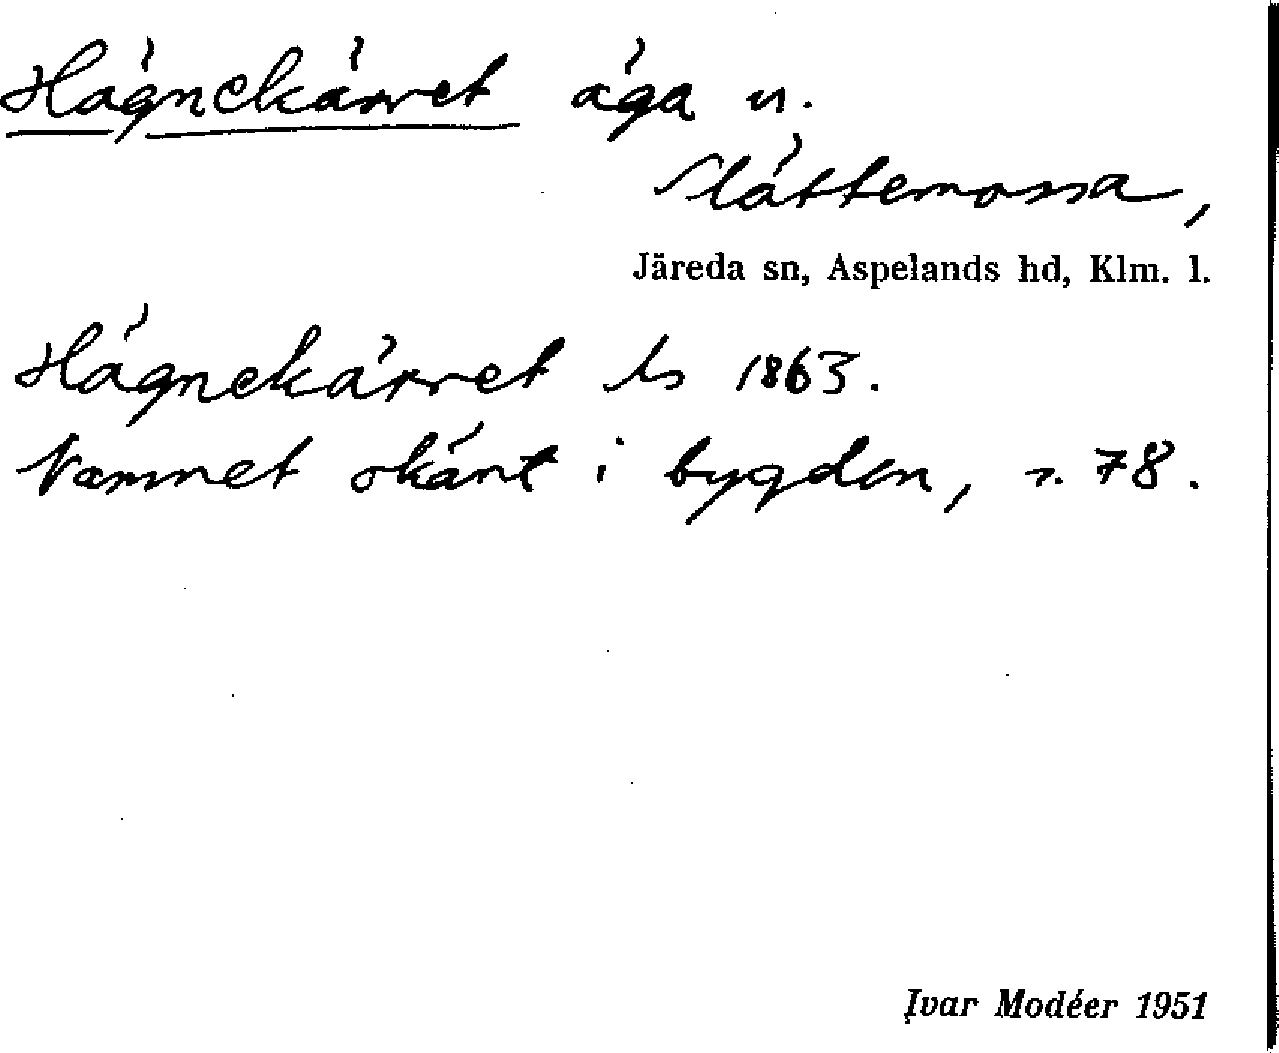 Hägnekärret äga u.
Slättemossa,
Järeda sn, Aspelands hd, Klm. l.
Hägnekärret Ls 1863.
Namnet okänt i bygden, s. 78.
Ivar Modéer 1951